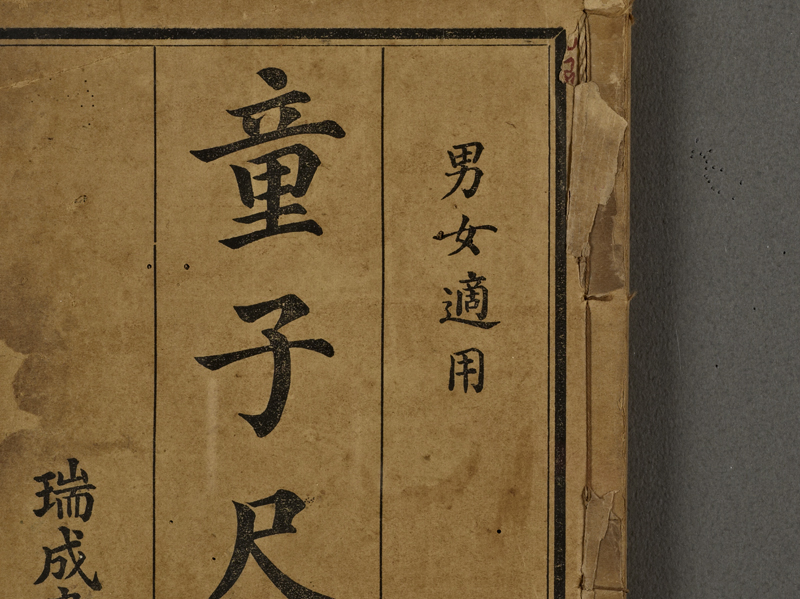 男女適用
童子尺
瑞成